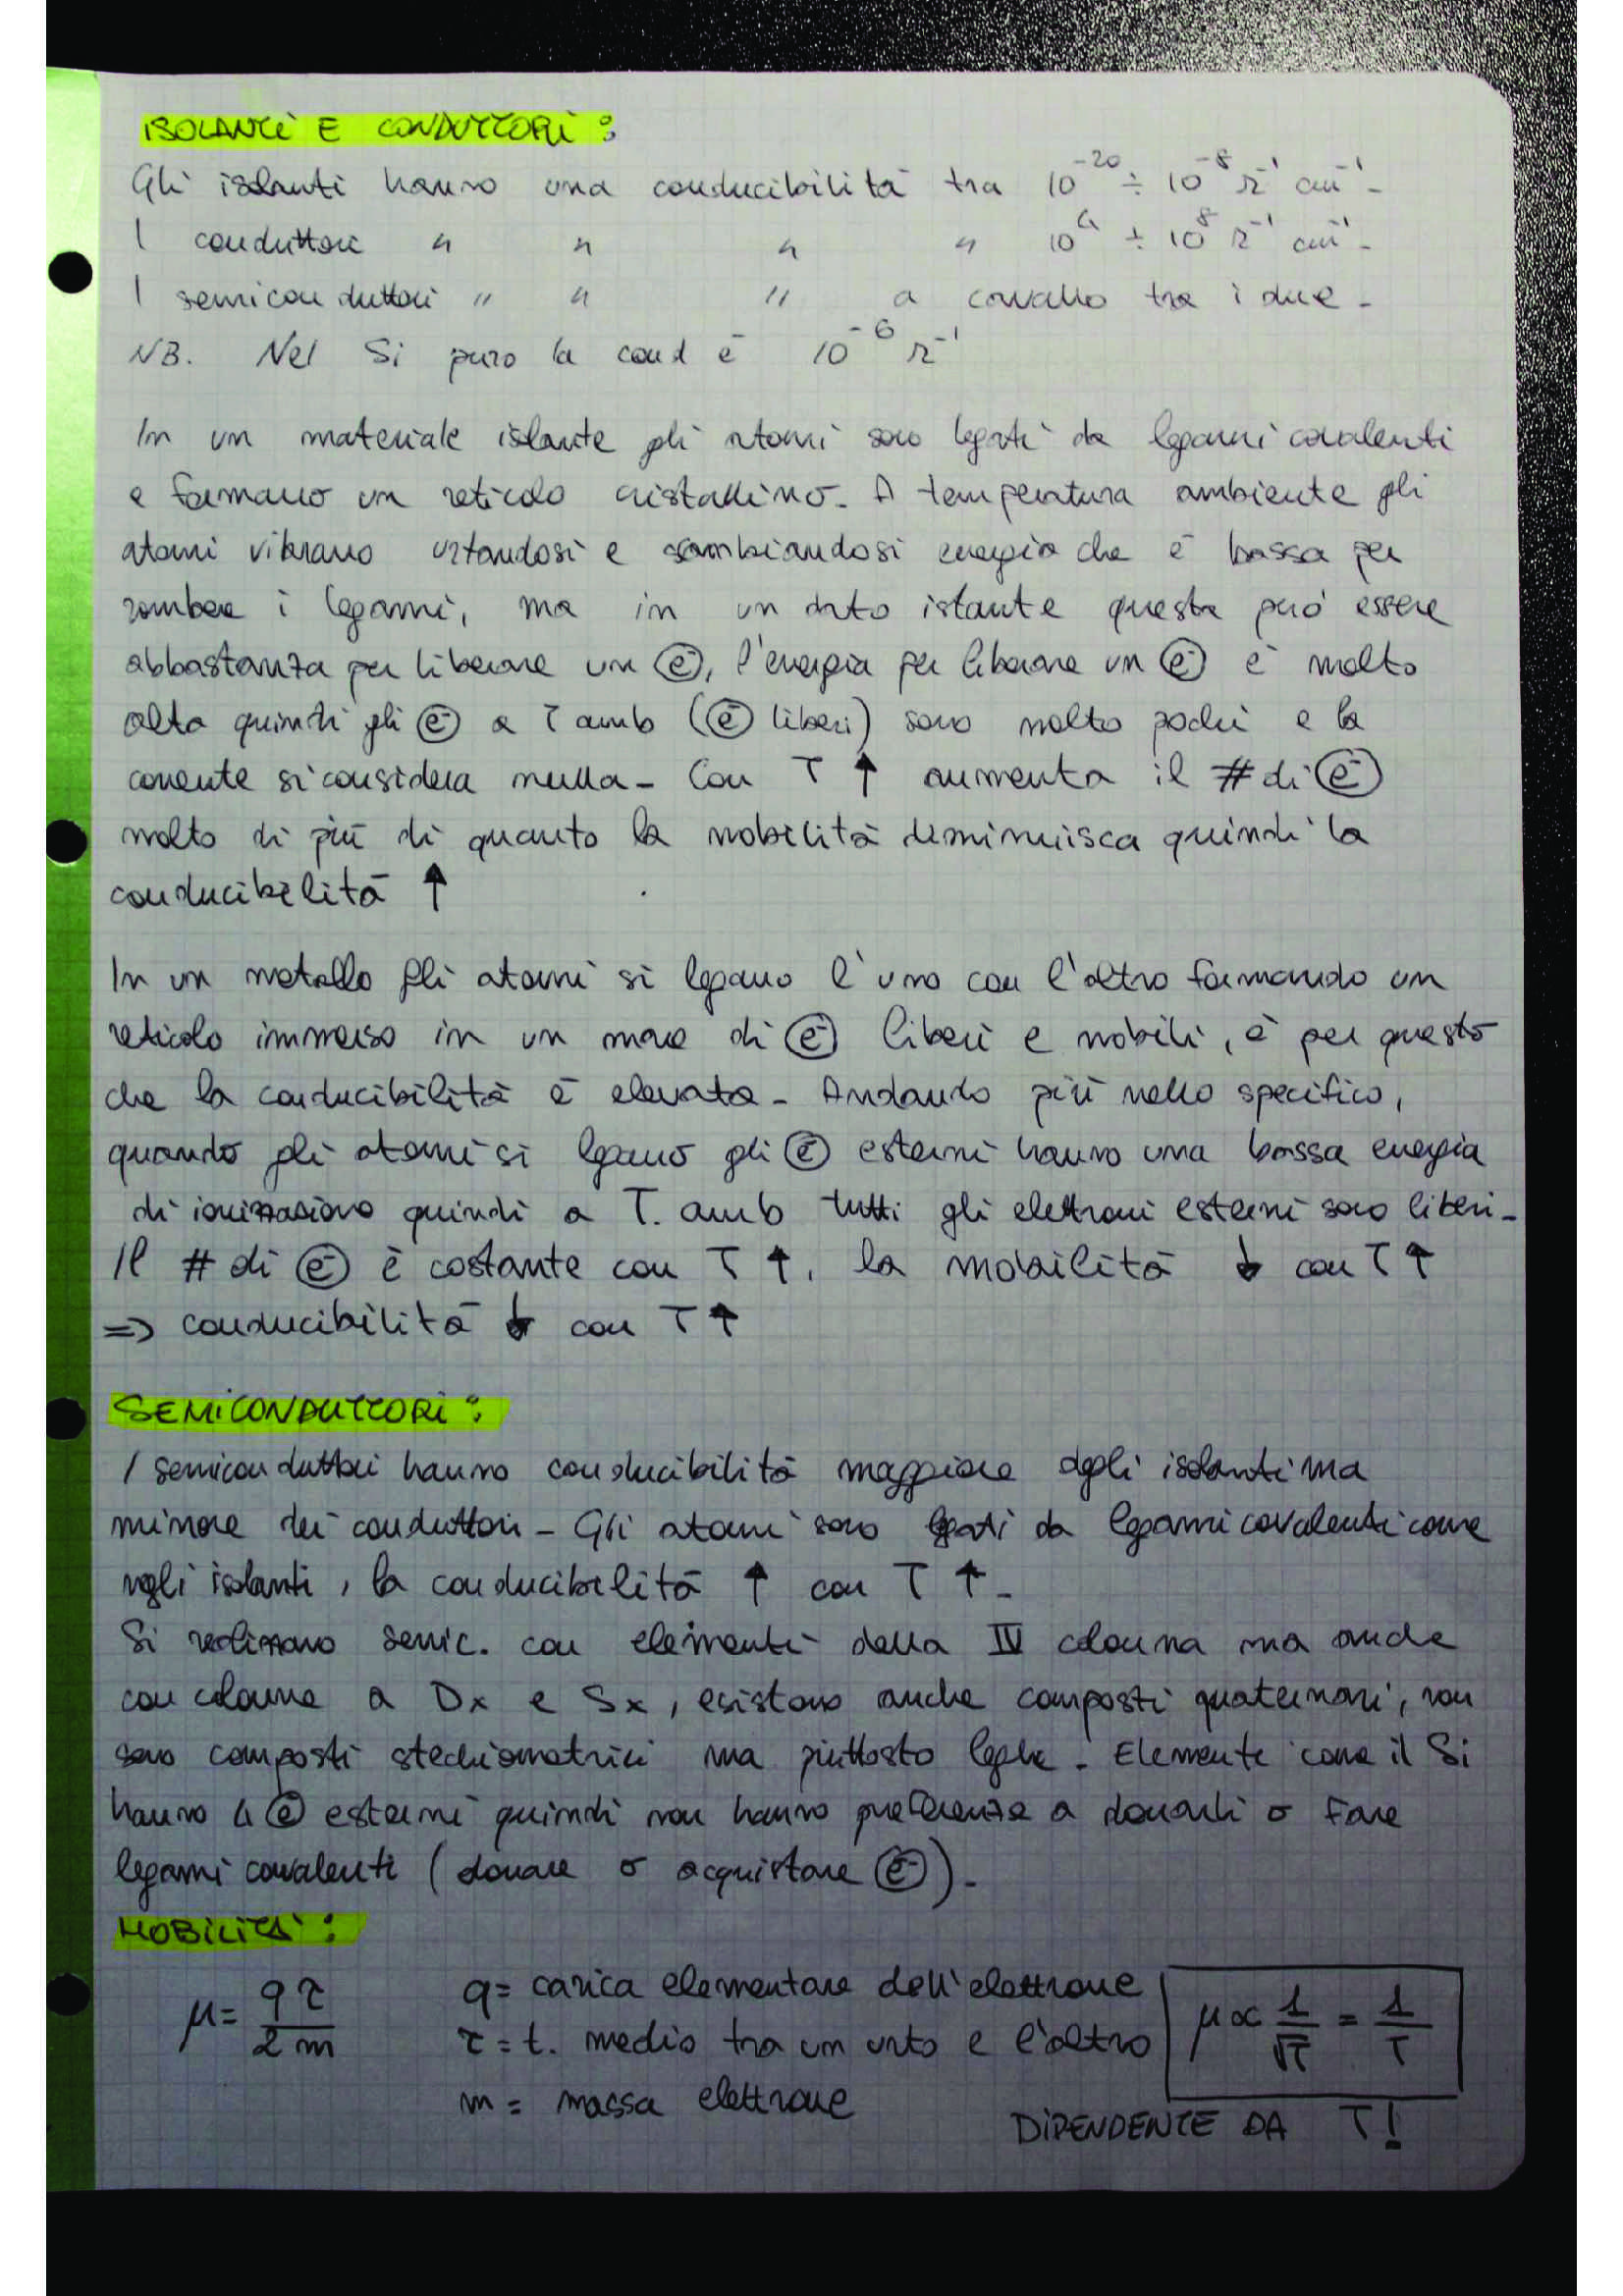 ISOLANTI E CONDUTTORI :
Gli isolanti hanno una conducibilità tra 10⁻²⁰ ÷ 10⁻⁸ Ω⁻¹ cm⁻¹ -
I conduttori " " " " 10⁴ ÷ 10⁸ Ω⁻¹ cm⁻¹ -
I semiconduttori " " " a cavallo tra i due -
NB. Nel Si puro la cond è 10⁻⁶ Ω⁻¹
In un materiale isolante gli atomi sono legati da legami covalenti
e formano un reticolo cristallino - A temperatura ambiente gli
atomi vibrano urtandosi e scambiandosi energia che è bassa per
rombere i legami, ma in un dato istante questa può essere
abbastanza per liberare un e⁻, l'energia per liberare un e⁻ è molto
alta quindi gli e⁻ a T amb (e⁻ liberi) sono molto pochi e la
corrente si considera nulla - Con T ↑ aumenta il # di e⁻
molto di più di quanto la mobilità diminuisca quindi la
conducibilità ↑
In un metallo gli atomi si legano l'uno con l'altro formando un
reticolo immerso in un mare di e⁻ liberi e mobili, è per questo
che la conducibilità è elevata - Andando più nello specifico,
quando gli atomi si legano gli e⁻ esterni hanno una bassa energia
di ionizzazione quindi a T. amb tutti gli elettroni esterni sono liberi -
Il # di e⁻ è costante con T ↑, la mobilità ↓ con T ↑
=> conducibilità ↓ con T ↑
SEMICONDUTTORI :
I semiconduttori hanno conducibilità maggiore degli isolanti ma
minore dei conduttori - Gli atomi sono legati da legami covalenti come
negli isolanti, la conducibilità ↑ con T ↑ -
Si realizzano semic. con elementi della IV colonna ma anche
con colonne a Dx e Sx, esistono anche composti quaternari, non
sono composti stechiometrici ma piuttosto leghe - Elemente come il Si
hanno 4 e⁻ esterni quindi non hanno preferenza a donarli o fare
legami covalenti (donare o acquistare e⁻) -
MOBILITÀ :
μ = qτ / 2m
q = carica elementare dell'elettrone
τ = t. medio tra un urto e l'altro
m = massa elettrone
μ ∝ 1/√T = 1/T
DIPENDENTE DA T!